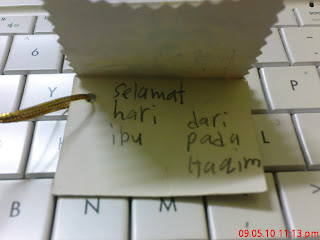 Selamat
hari
ibu
dari
pada
Haqim
6
Y
H
L
B
N
M
09.05.10 11:13 pm